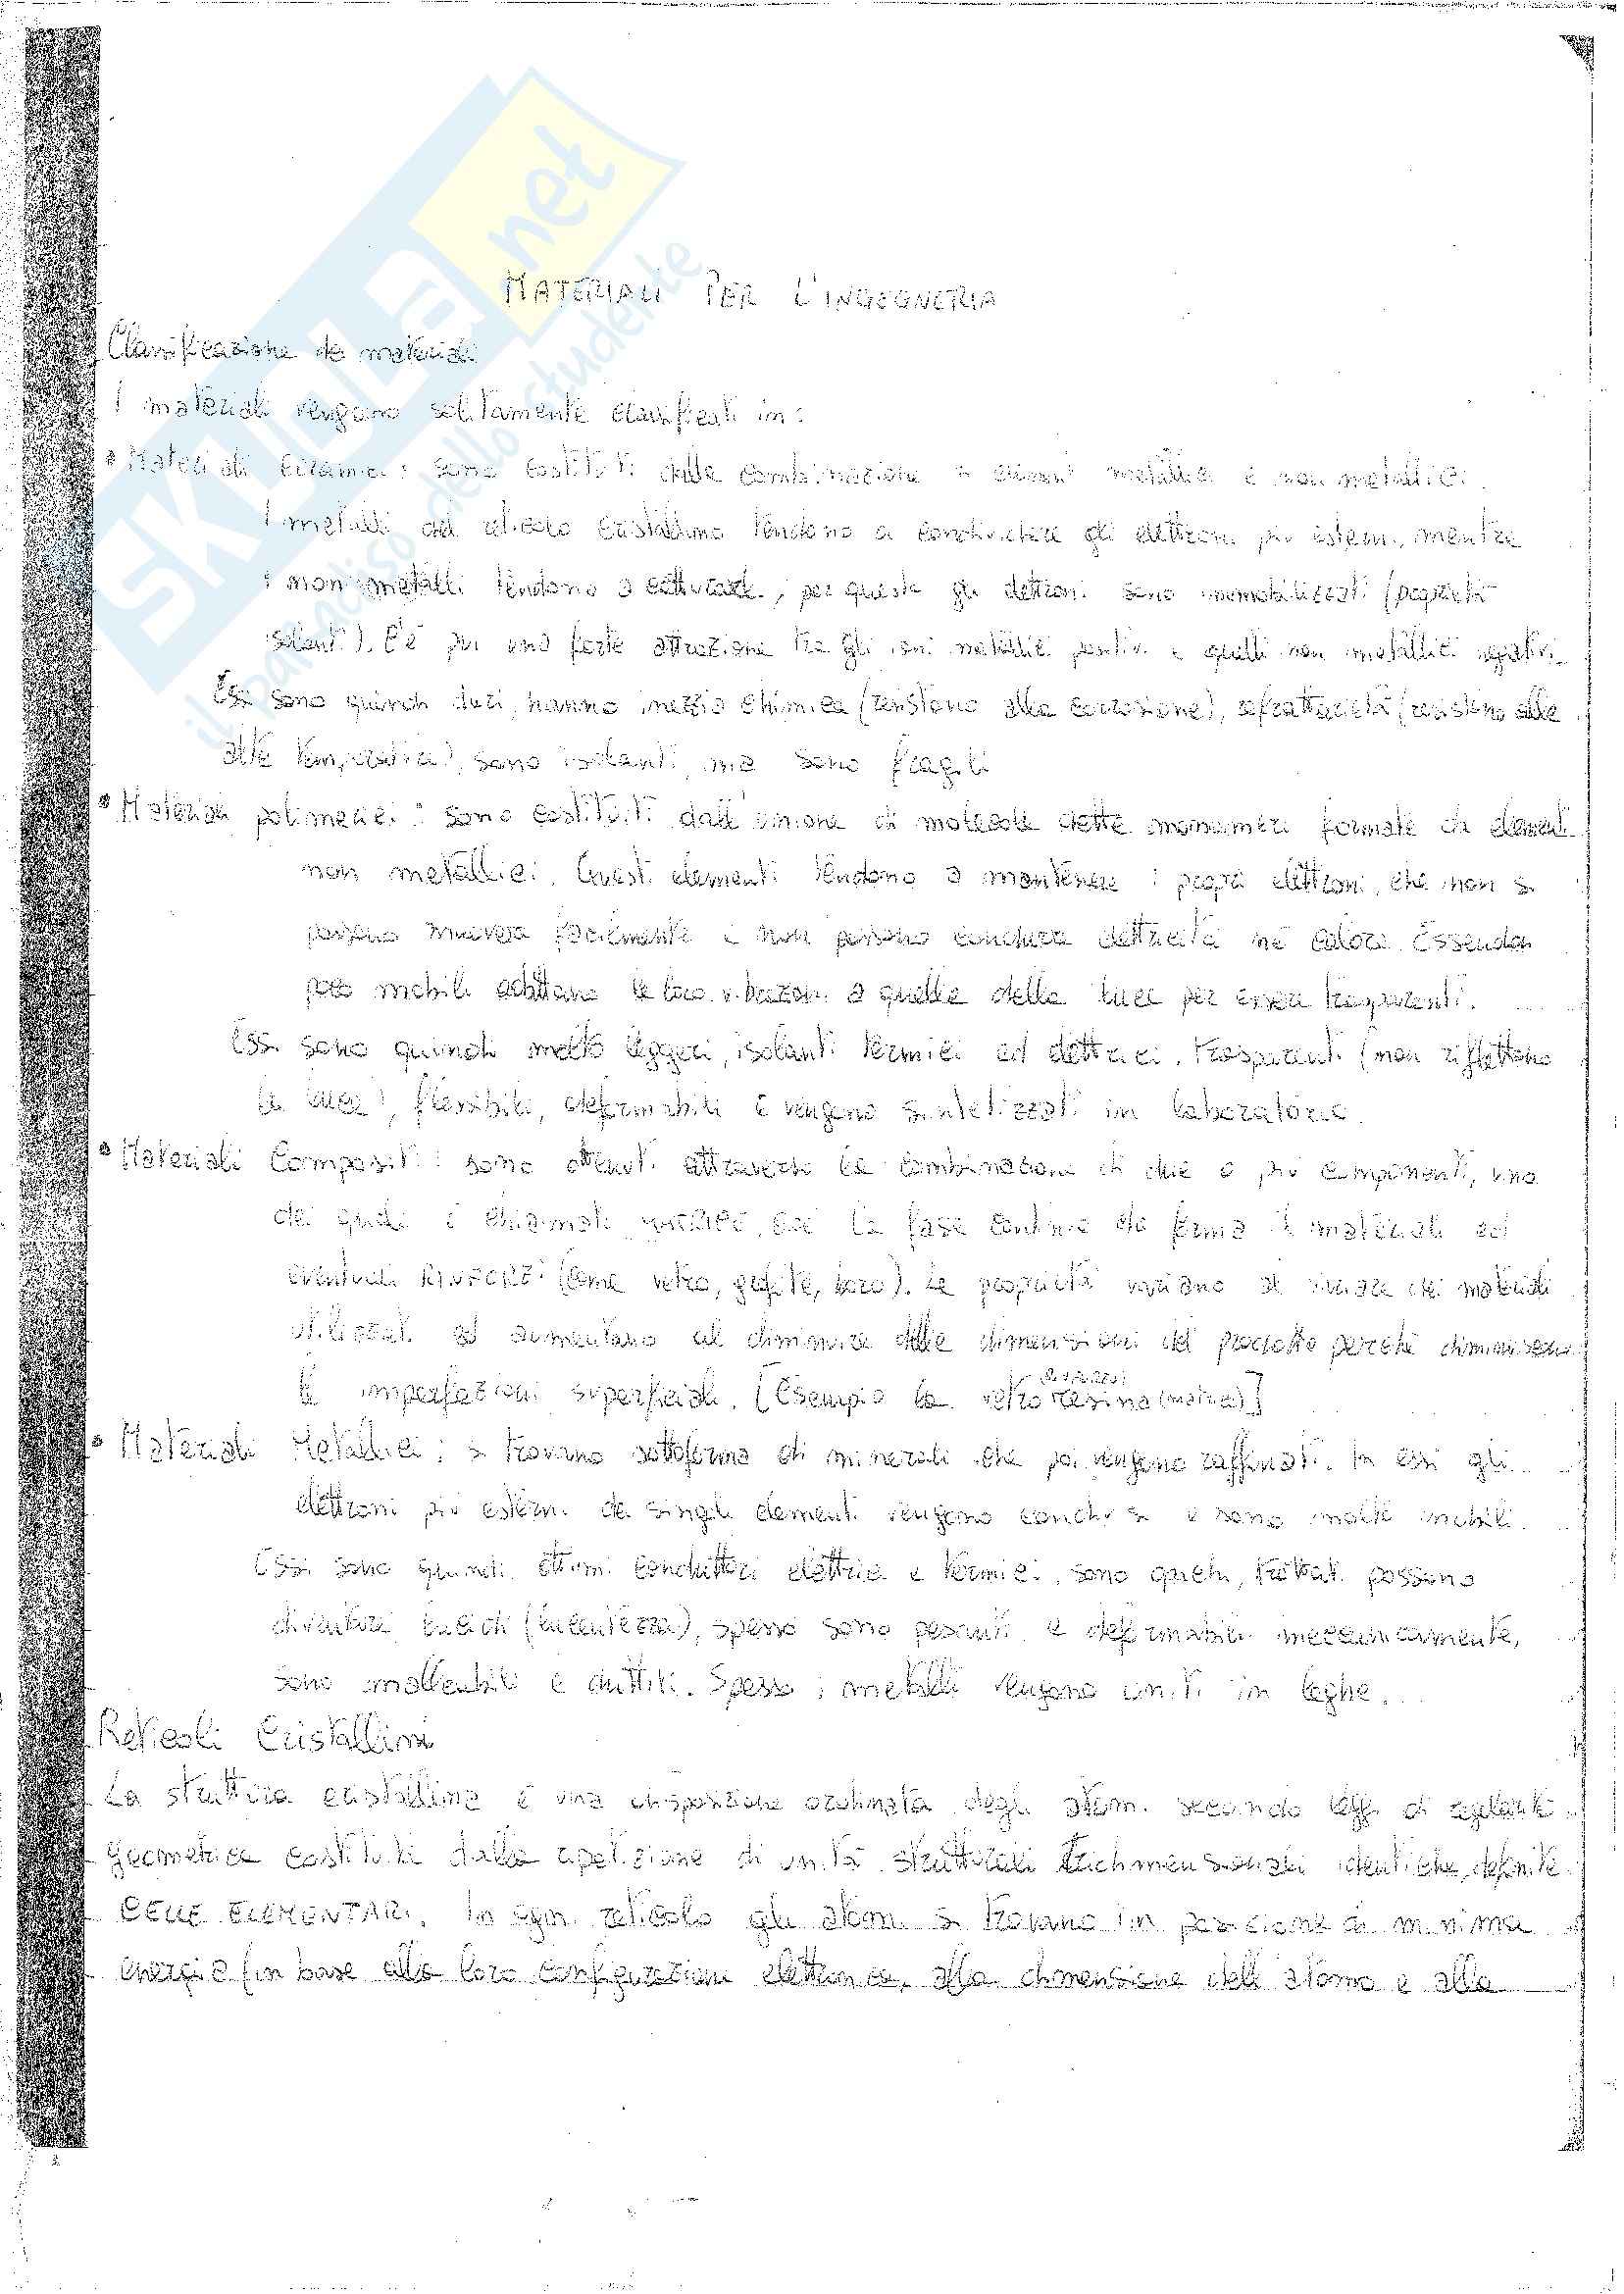 SKUOLA.net
il paradiso dello studente
MATERIALI PER L'INGEGNERIA
Classificazione dei materiali
I materiali vengono solitamente classificati in:
• Materiali ceramici: sono costituiti dalla combinazione di elementi metallici e non metallici.
I metalli del reticolo cristallino tendono a condividere gli elettroni più esterni, mentre
i non metalli tendono a catturarli, per questo gli elettroni sono immobilizzati (proprietà
isolanti). C'è poi una forte attrazione tra gli ioni metallici positivi e quelli non metallici negativi
Essi sono quindi duri, hanno inerzia chimica (resistono alla corrosione), refrattarietà (resistono alle
alte temperature), sono isolanti, ma sono fragili
• Materiali polimerici: sono costituiti dall'unione di molecole dette monomeri formate da elementi
non metallici. Questi elementi tendono a mantenere i propri elettroni, che non si
possono muovere facilmente e non possono condurre elettricità né calore. Essendo
poco mobili adattano le loro vibrazioni a quelle della luce per essere trasparenti.
Essi sono quindi molto leggeri, isolanti termici ed elettrici, trasparenti (non riflettono
la luce), flessibili, deformabili e vengono sintetizzati in laboratorio.
• Materiali Compositi: sono ottenuti attraverso la combinazione di due o più componenti, uno
dei quali è chiamato MATRICE, cioè la fase continua che forma il materiale ed
eventuali RINFORZI (come vetro, grafite, boro). Le proprietà variano al variare dei materiali
utilizzati ed aumentano al diminuire delle dimensioni del prodotto perché diminuiscono
le imperfezioni superficiali. [Esempio la vetroresina (matrice)]
(rinforzo)
• Materiali Metallici: si trovano sottoforma di minerali che poi vengono raffinati. In essi gli
elettroni più esterni dei singoli elementi vengono condivisi e sono molto mobili.
Essi sono quindi ottimi conduttori elettrici e termici, sono opachi, trattati possono
diventare lucidi (lucentezza), spesso sono pesanti e deformabili meccanicamente,
sono malleabili e duttili. Spesso i metalli vengono uniti in leghe.
Reticoli Cristallini
La struttura cristallina è una disposizione ordinata degli atomi secondo leggi di regolarità
geometrica costituita dalla ripetizione di unità strutturali tridimensionali identiche definite
CELLE ELEMENTARI. In ogni reticolo gli atomi si trovano in posizione di minima
energia (in base alla loro configurazione elettronica, alla dimensione dell'atomo e alla